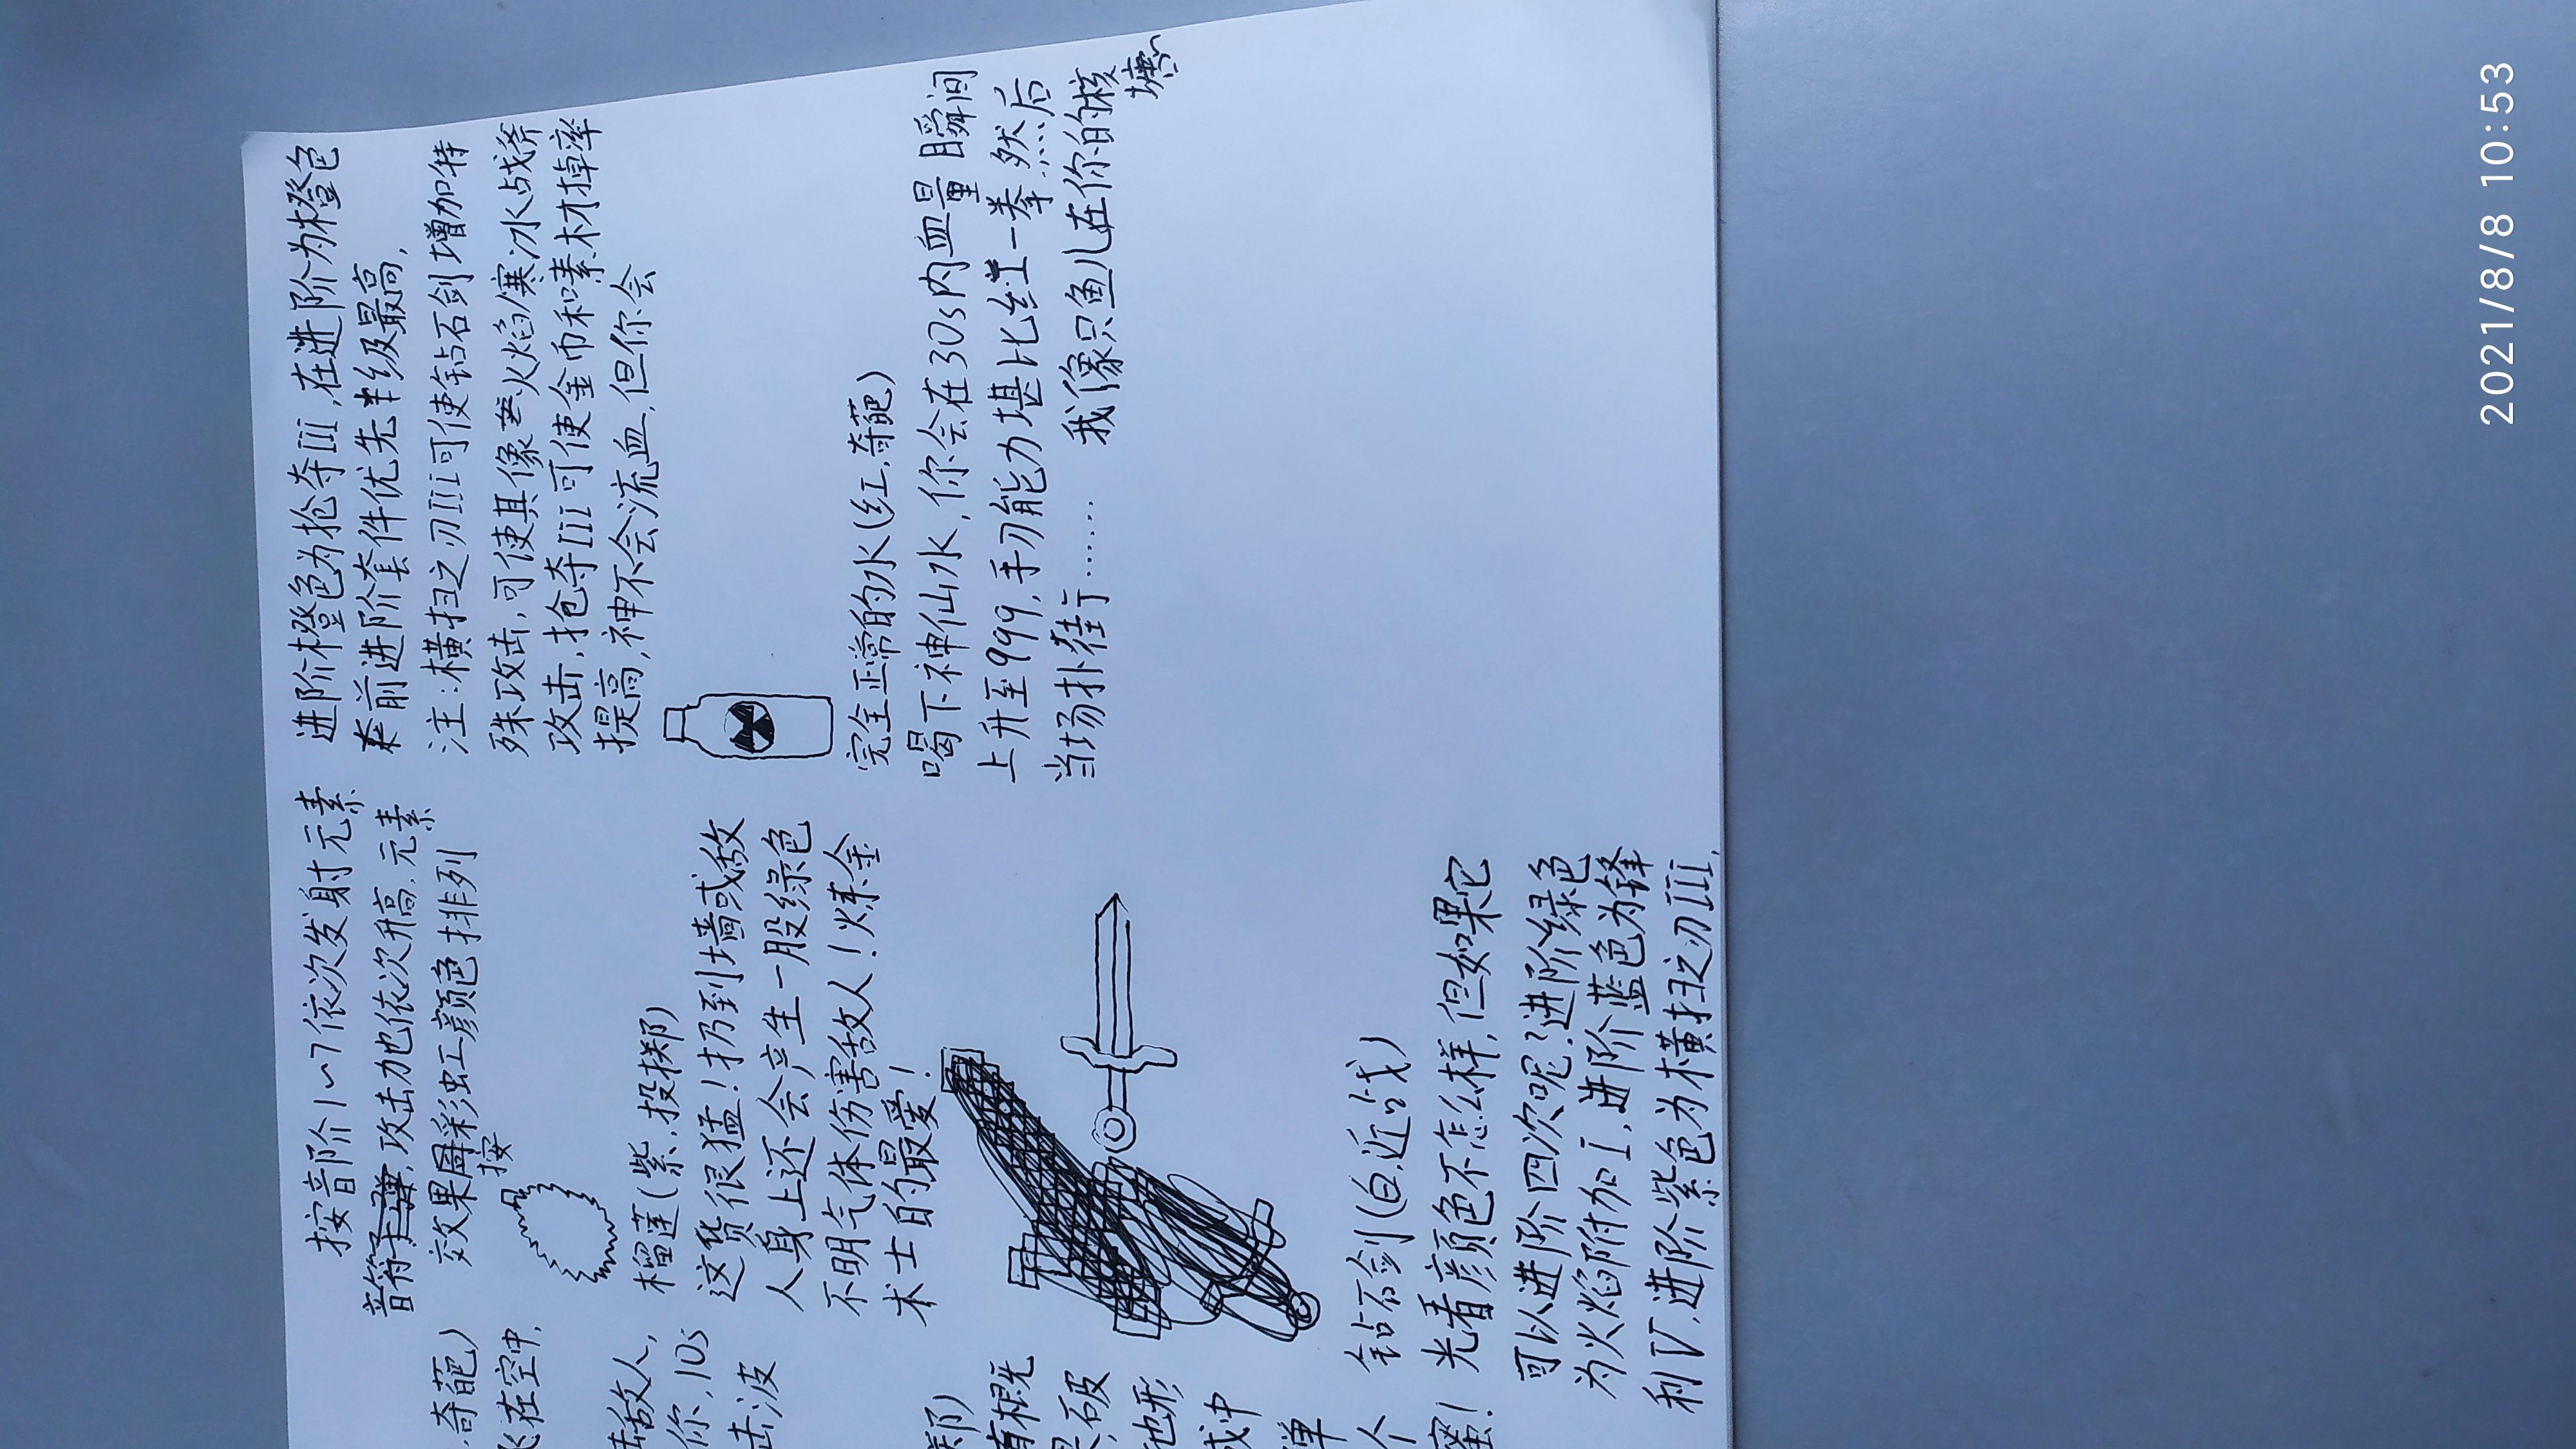 奇葩)
在空中,
击敌人,
你,10s
击波
掷)
有概
破
他形
或中
弹
个
蜜!
按音阶1~7依次发射元素
音符弹,攻击力也依次升高,元素
效果按彩虹颜色排列
榴莲(紫,投掷)
这货很猛!扔到墙或敌
人身上还会产生一股绿色
不明气体伤害敌人!炼金
术士的最爱!
钻石剑(白,近战)
光看颜色不怎么样,但如果它
可以进阶四次呢?进阶绿色
为火焰附加I,进阶蓝色为锋
利V,进阶紫色为横扫之刃III,
进阶橙色为抢夺III,在进阶为橙色
前进阶套件优先级最高,
注:横扫之刃III可使钻石剑增加特
殊攻击,可使其像火焰/寒冰战斧
攻击,抢夺III可使金币和素材掉率
提高,神不会流血,但你会
完全正常的水(红,奇葩)
喝下神仙水,你会在30s内血量瞬间
上升至999,手刃能力堪比红一拳,然后
当场扑街…… 我像只鱼儿在你的核
塘~
2021/8/8 10:53